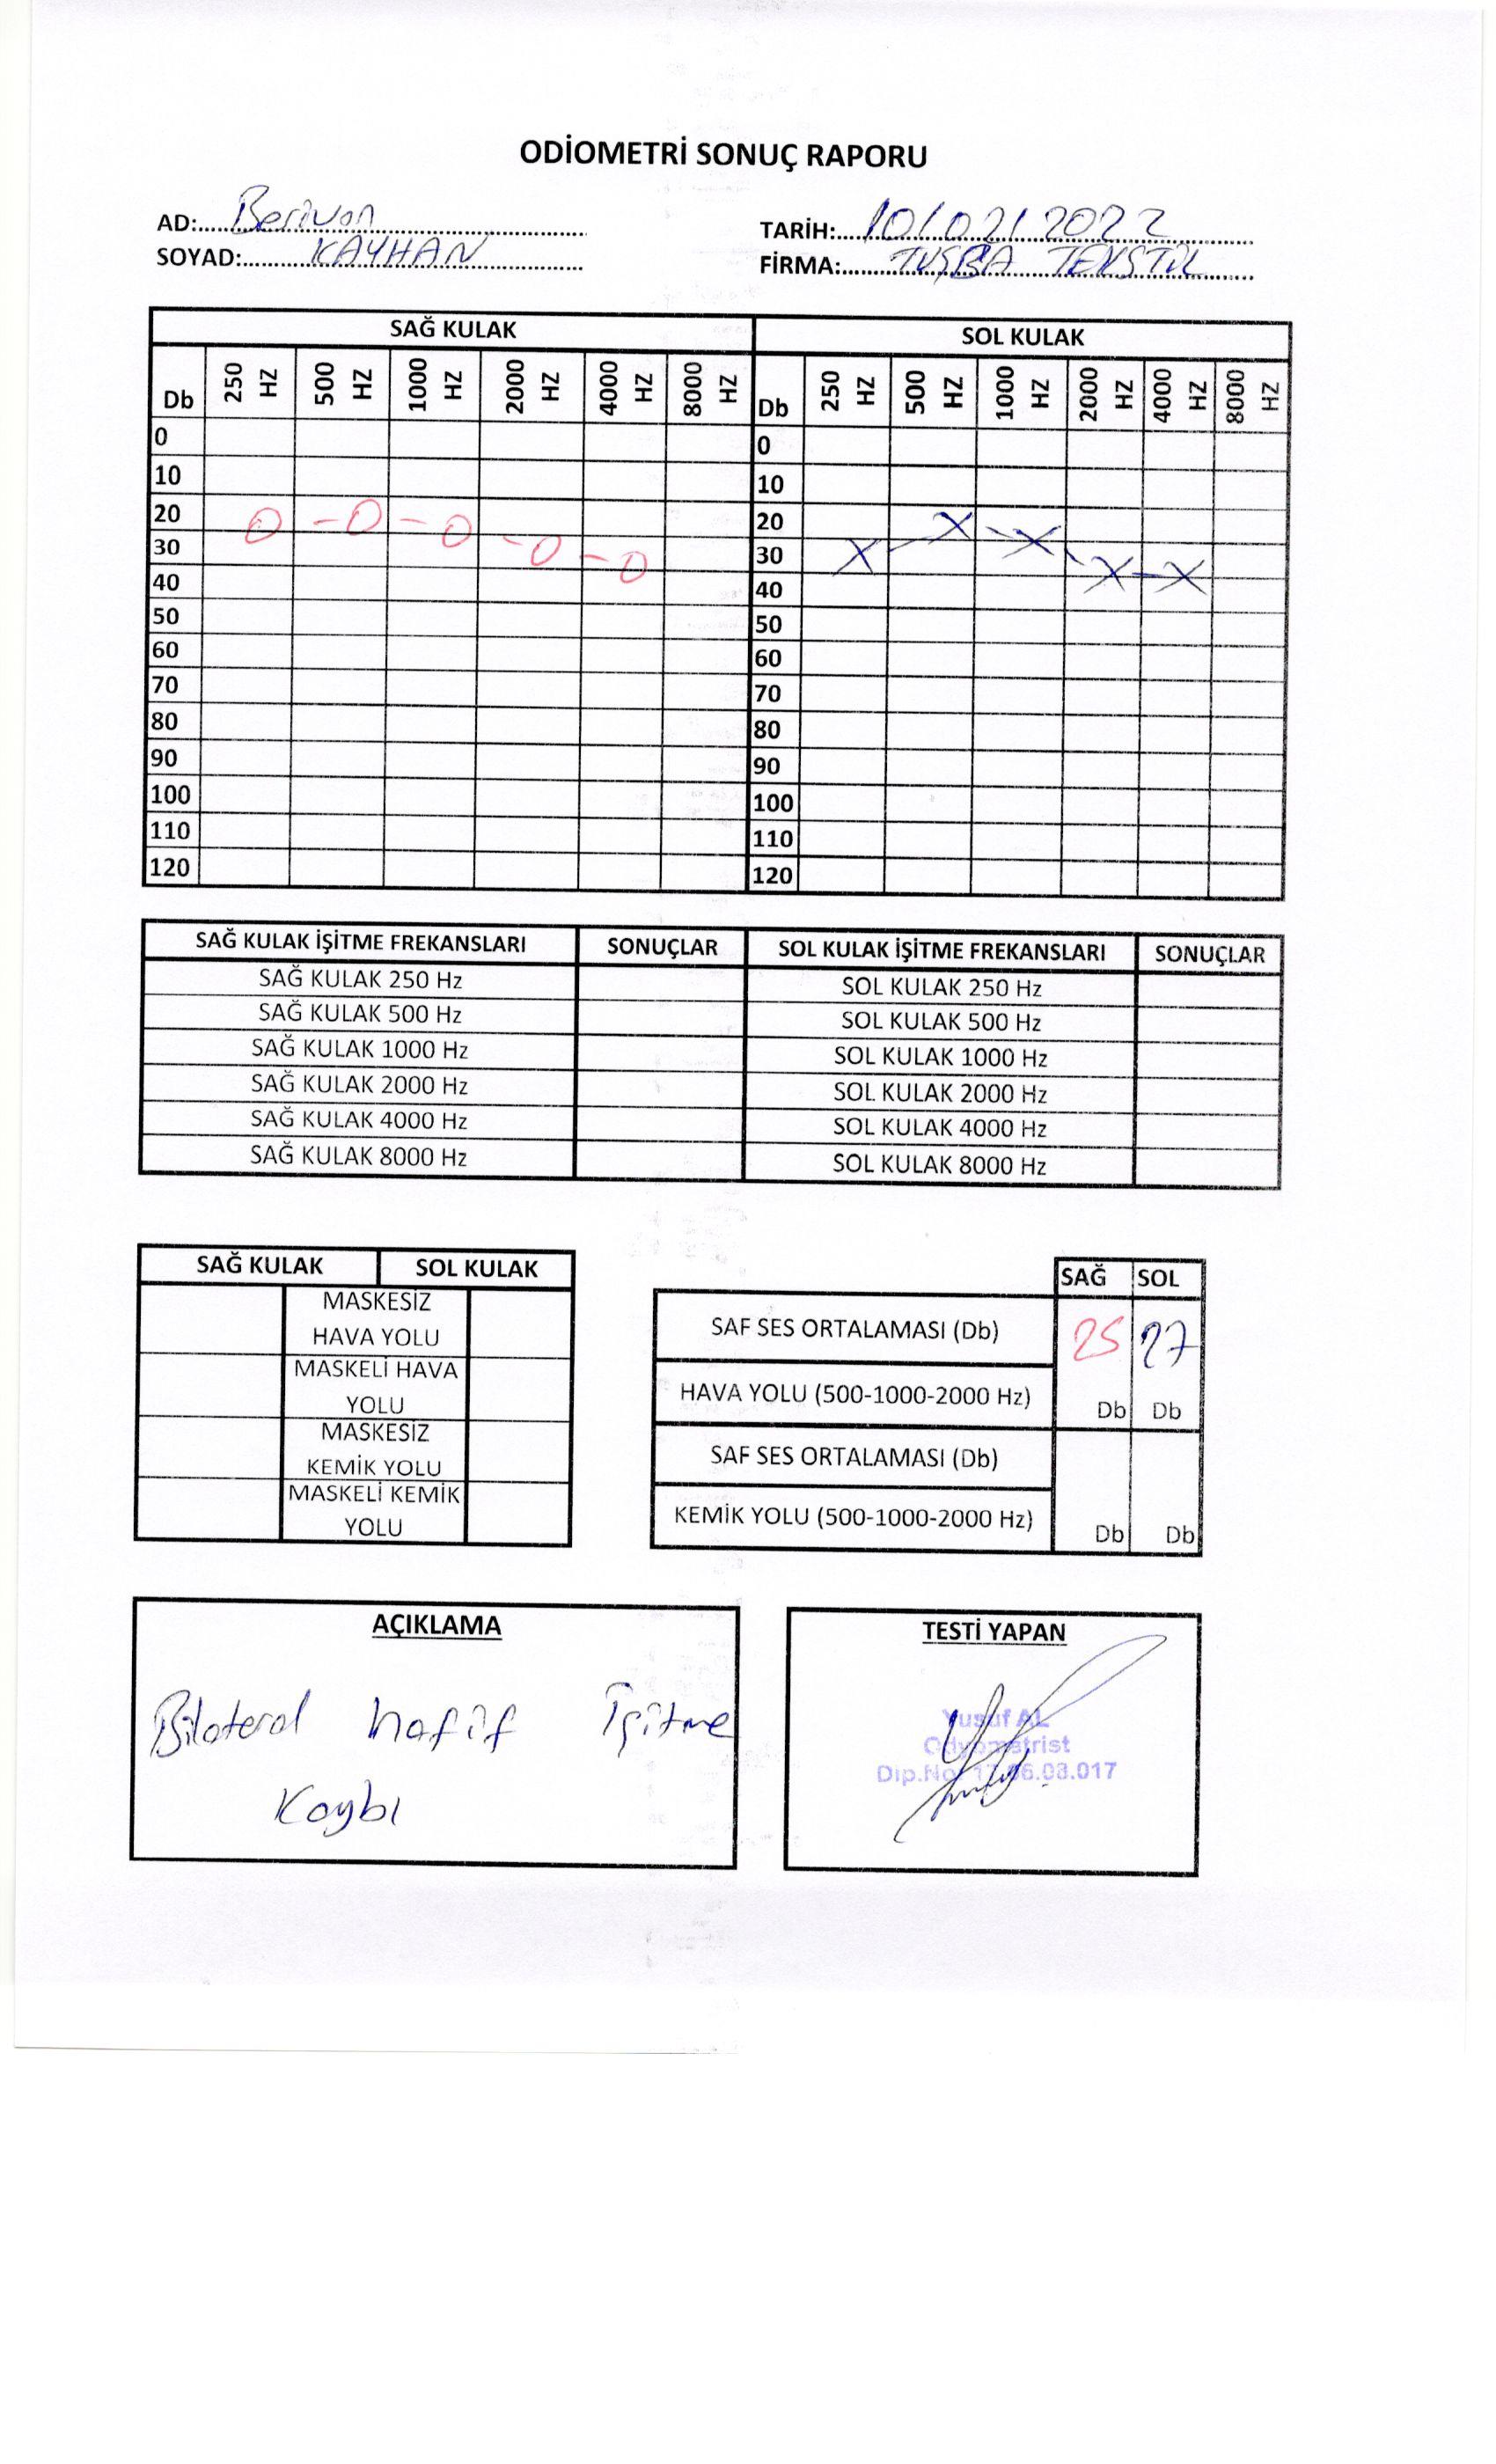 ODİOMETRİ SONUÇ RAPORU
AD: Berivan TARİH: 10/02/2022
SOYAD: KAYHAN FİRMA: TUŞBA TEKSTİL
SAĞ KULAK SOL KULAK
Db 250 HZ 500 HZ 1000 HZ 2000 HZ 4000 HZ 8000 HZ Db 250 HZ 500 HZ 1000 HZ 2000 HZ 4000 HZ 8000 HZ
0 0
10 10
20 20
30 30
40 40
50 50
60 60
70 70
80 80
90 90
100 100
110 110
120 120
SAĞ KULAK İŞİTME FREKANSLARI SONUÇLAR SOL KULAK İŞİTME FREKANSLARI SONUÇLAR
SAĞ KULAK 250 Hz SOL KULAK 250 Hz
SAĞ KULAK 500 Hz SOL KULAK 500 Hz
SAĞ KULAK 1000 Hz SOL KULAK 1000 Hz
SAĞ KULAK 2000 Hz SOL KULAK 2000 Hz
SAĞ KULAK 4000 Hz SOL KULAK 4000 Hz
SAĞ KULAK 8000 Hz SOL KULAK 8000 Hz
SAĞ KULAK SOL KULAK
MASKESİZ
HAVA YOLU
MASKELİ HAVA
YOLU
MASKESİZ
KEMİK YOLU
MASKELİ KEMİK
YOLU
SAĞ SOL
SAF SES ORTALAMASI (Db) 25 27
HAVA YOLU (500-1000-2000 Hz) Db Db
SAF SES ORTALAMASI (Db)
KEMİK YOLU (500-1000-2000 Hz) Db Db
AÇIKLAMA
Bilateral hafif İşitme
Kaybı
TESTİ YAPAN
Yusuf AL
Odyometrist
Dip.No: 06.03.017